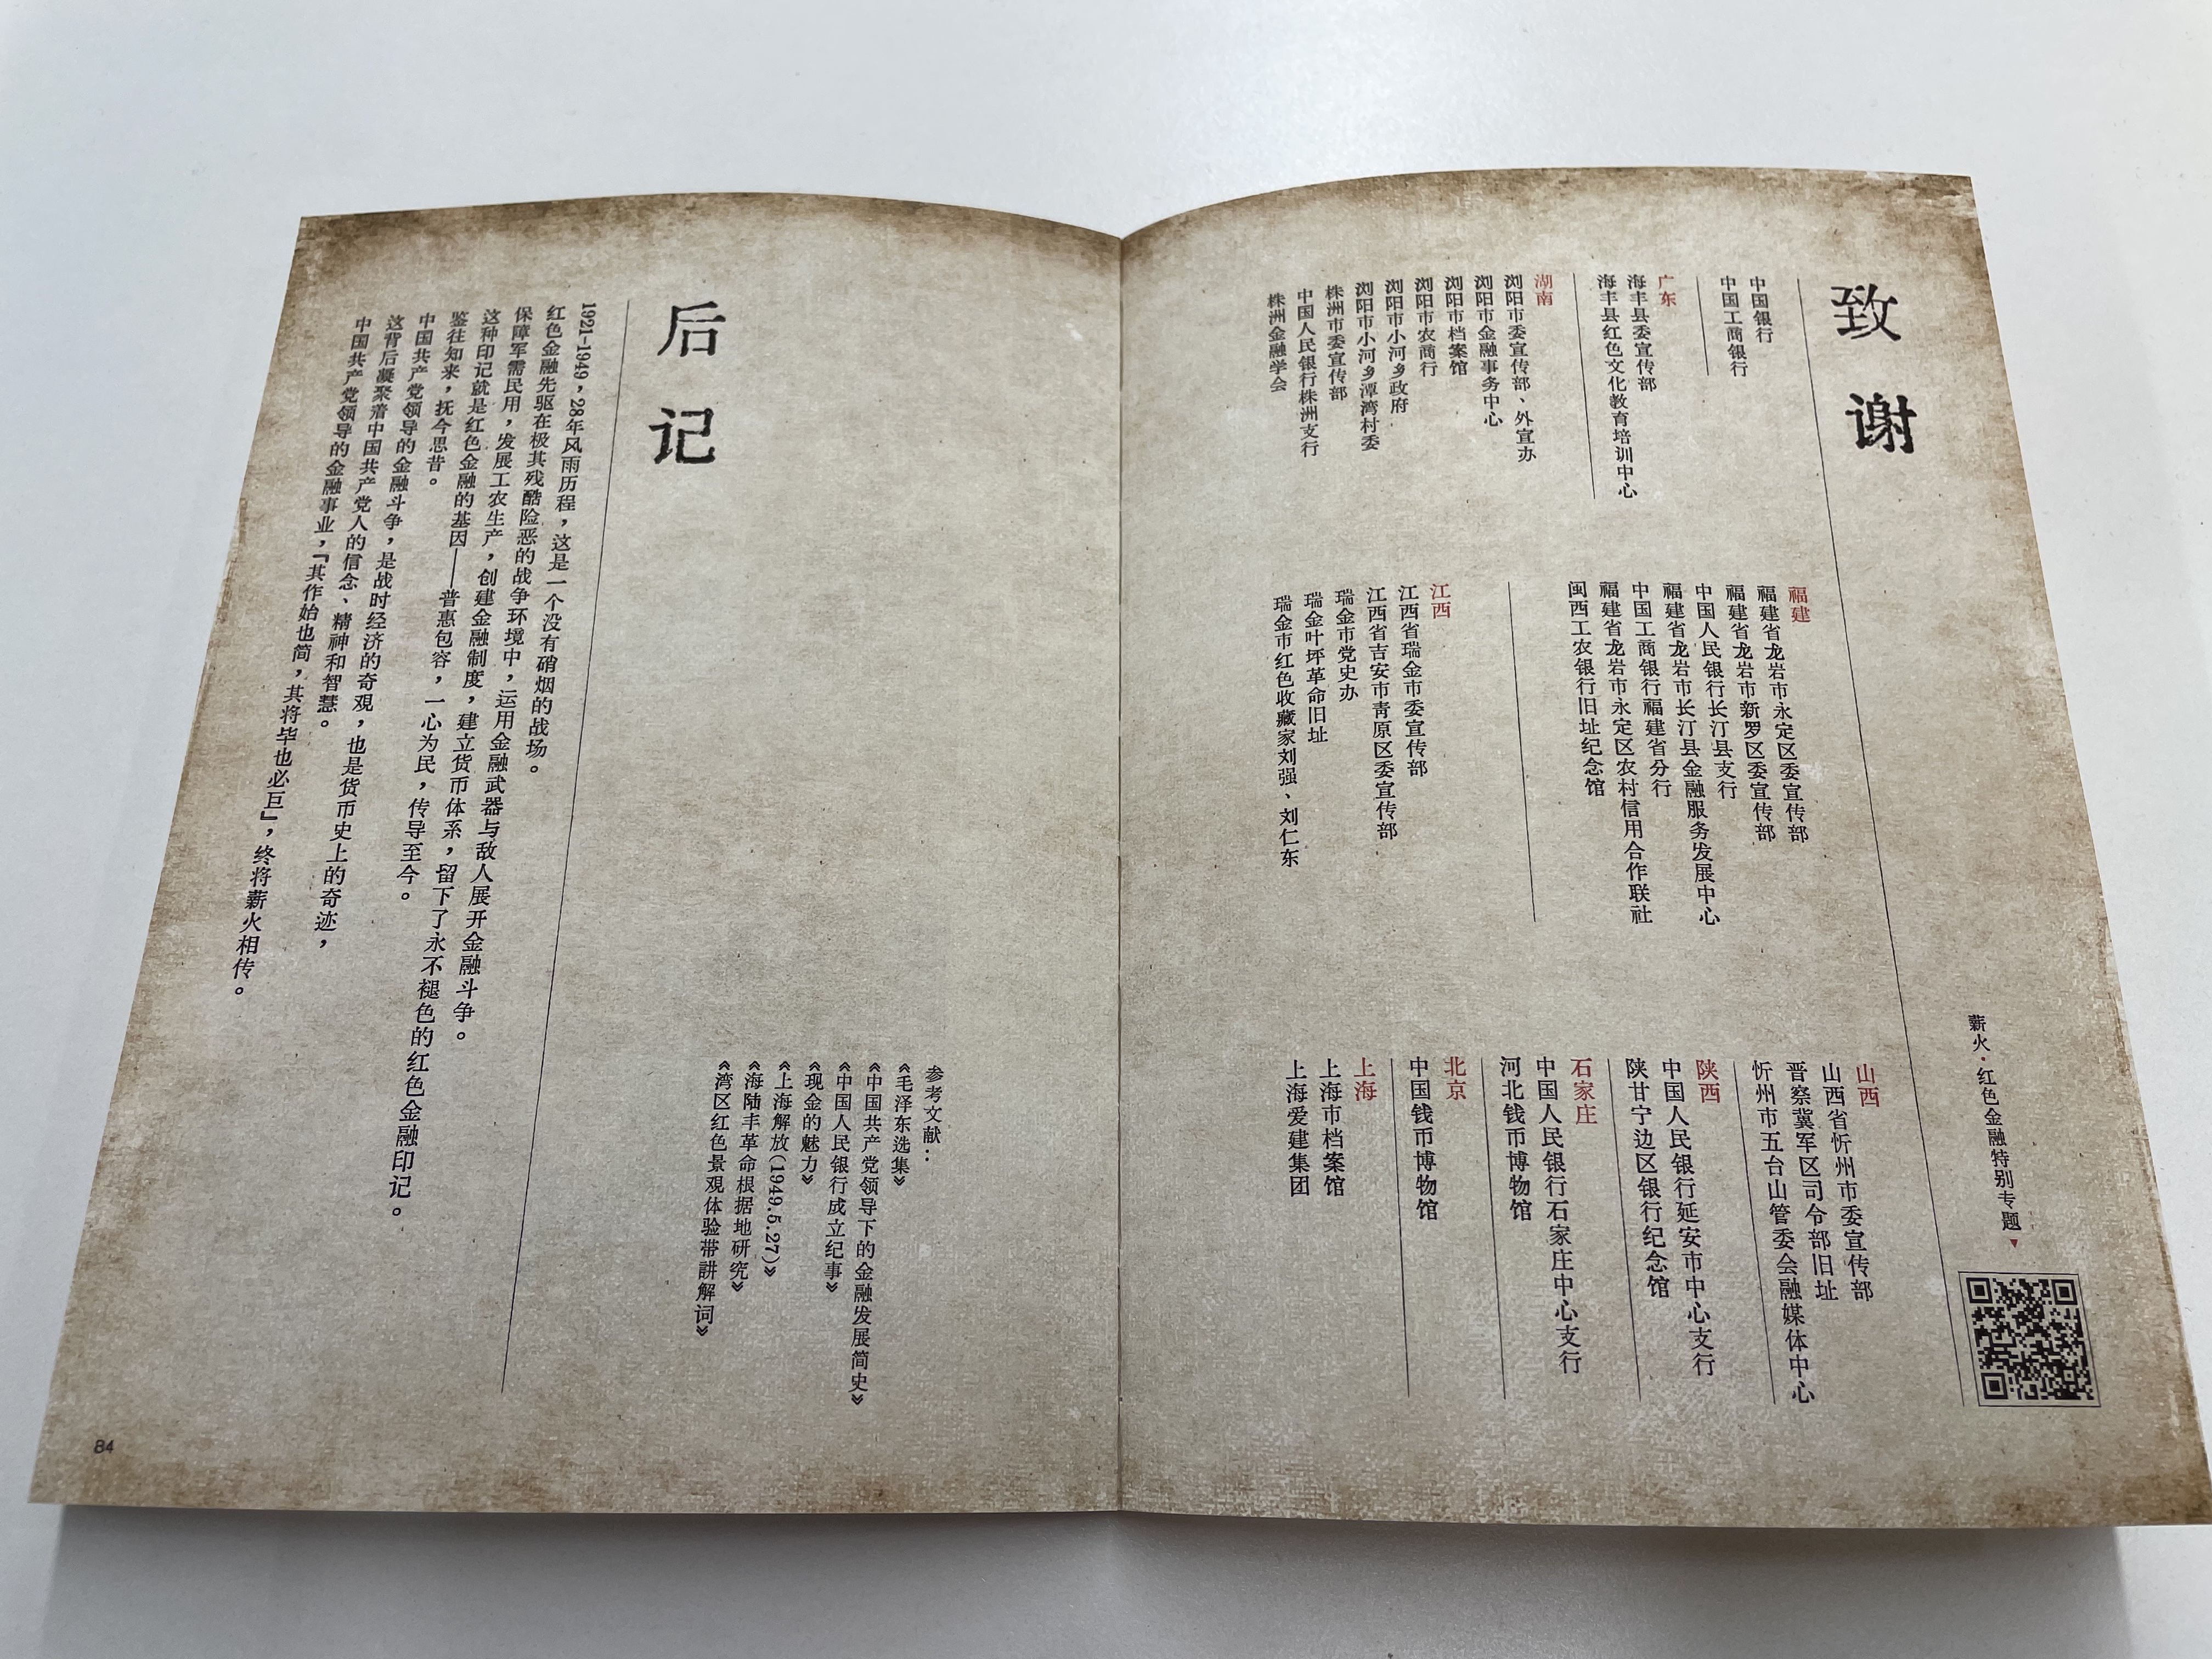 致谢
中国银行
中国工商银行
广东
海丰县委宣传部
海丰县红色文化教育培训中心
湖南
浏阳市委宣传部、外宣办
浏阳市金融事务中心
浏阳市档案馆
浏阳市农商行
浏阳市小河乡政府
浏阳市小河乡潭湾村委
株洲市委宣传部
中国人民银行株洲支行
株洲金融学会
福建
福建省龙岩市永定区委宣传部
福建省龙岩市新罗区委宣传部
中国人民银行长汀县支行
福建省龙岩市长汀县金融服务发展中心
中国工商银行福建省分行
福建省龙岩市永定区农村信用合作联社
闽西工农银行旧址纪念馆
江西
江西省瑞金市委宣传部
江西省吉安市青原区委宣传部
瑞金市党史办
瑞金叶坪革命旧址
瑞金市红色收藏家刘强、刘仁东
山西
山西省忻州市委宣传部
晋察冀军区司令部旧址
忻州市五台山管委会融媒体中心
陕西
中国人民银行延安市中心支行
陕甘宁边区银行纪念馆
石家庄
中国人民银行石家庄中心支行
河北钱币博物馆
北京
中国钱币博物馆
上海
上海市档案馆
上海爱建集团
薪火·红色金融特别专题▼
后记
1921-1949，28年风雨历程，这是一个没有硝烟的战场。
红色金融先驱在极其残酷险恶的战争环境中，运用金融武器与敌人展开金融斗争。
保障军需民用，发展工农生产，创建金融制度，建立货币体系，留下了永不褪色的红色金融印记。
这种印记就是红色金融的基因——普惠包容，一心为民，传导至今。
鉴往知来，抚今思昔。
中国共产党领导的金融斗争，是战时经济的奇观，也是货币史上的奇迹，
这背后凝聚着中国共产党人的信念、精神和智慧。
中国共产党领导的金融事业，「其作始也简，其将毕也必巨」，终将薪火相传。
参考文献：
《毛泽东选集》
《中国共产党领导下的金融发展简史》
《中国人民银行成立纪事》
《现金的魅力》
《上海解放(1949.5.27)》
《海陆丰革命根据地研究》
《湾区红色景观体验带讲解词》
84